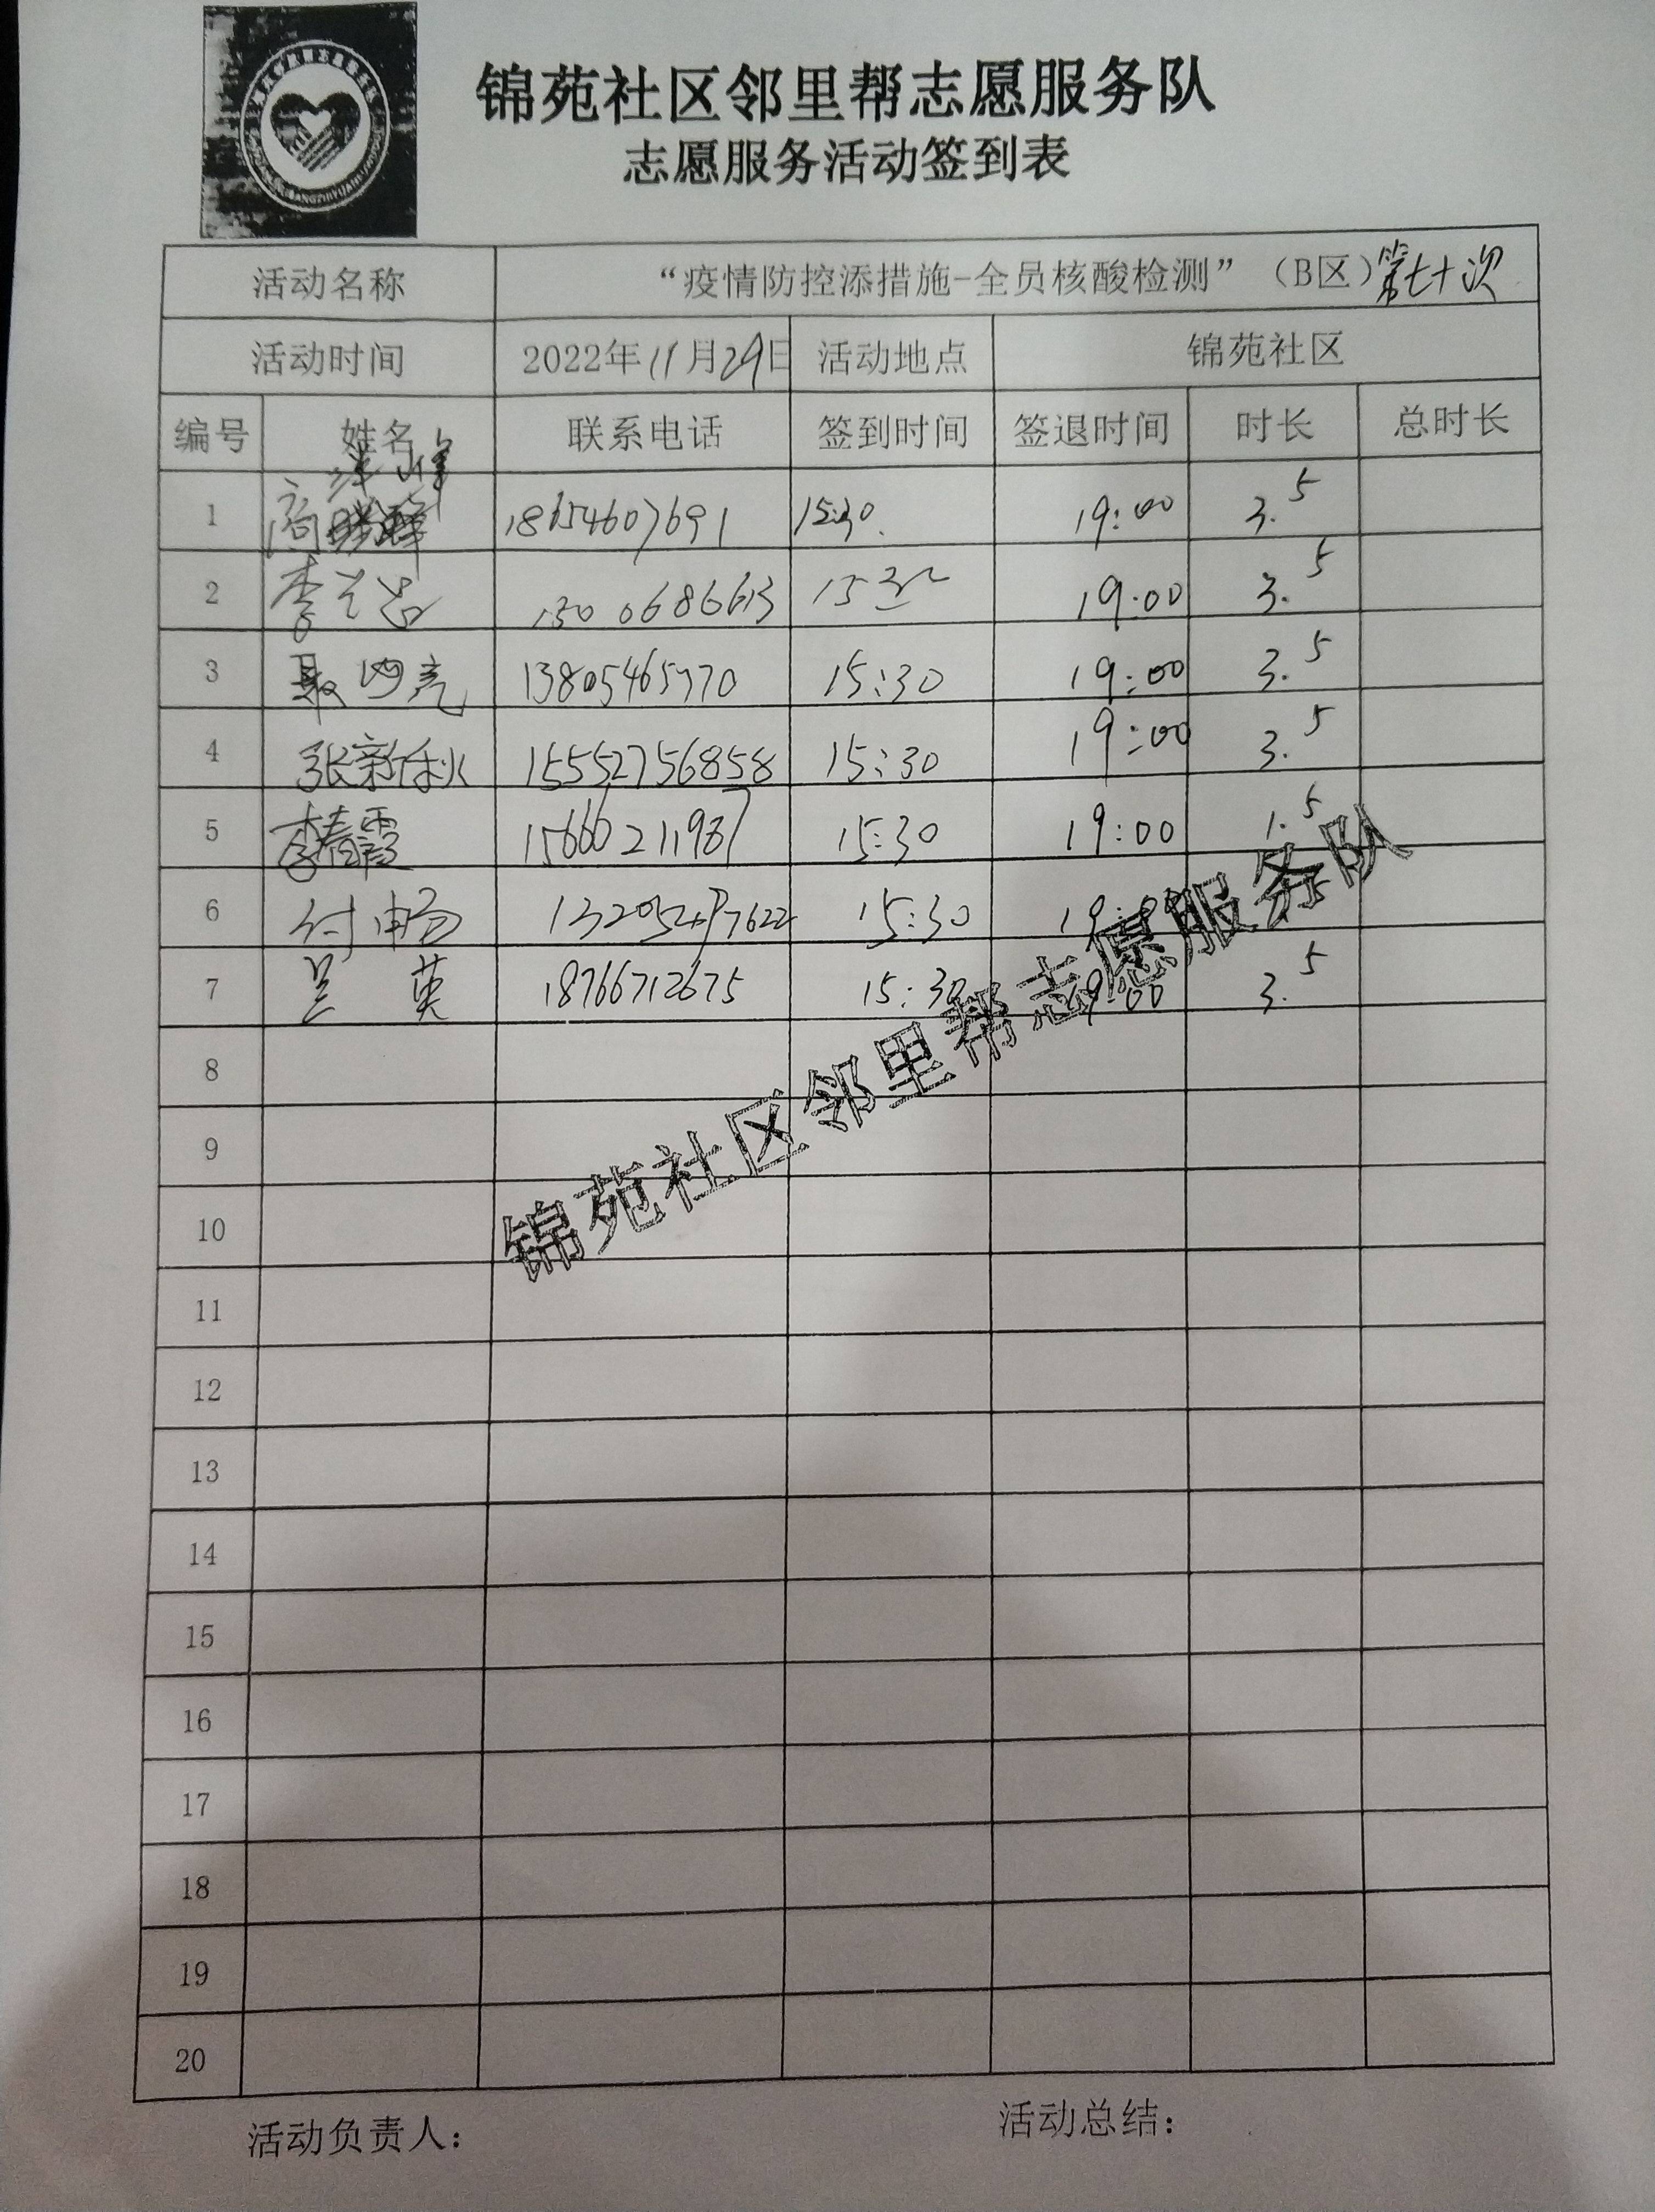 锦苑社区邻里帮志愿服务队
志愿服务活动签到表
活动名称 “疫情防控添措施-全员核酸检测”（B区）第七十次
活动时间 2022年11月29日 活动地点 锦苑社区
编号 姓名 联系电话 签到时间 签退时间 时长 总时长
1 高 18654607691 15:30 19:00 3.5
2 李 15 19:00 3.5
3 13805465770 15:30 19:00 3.5
4 张新秋 15552756858 15:30 19:00 3.5
5 李青霞 15:30 19:00 1.5
6 付畅 15:30 19:00
7 吴英 18766712675 15:30 19:00 3.5
8
9
10
11
12
13
14
15
16
17
18
19
20
锦苑社区邻里帮志愿服务队
活动负责人： 活动总结：